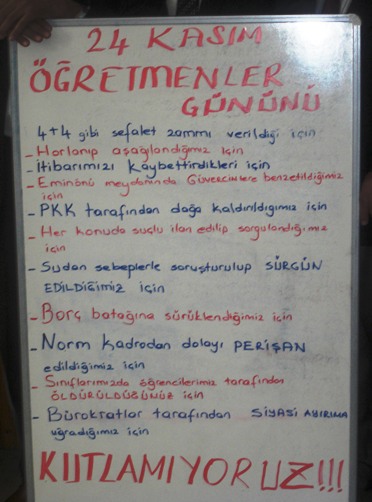 24 KASIM
ÖĞRETMENLER
GÜNÜNÜ
4+4 gibi sefalet zammı verildiği için
- Horlanıp aşağılandığımız için
- İtibarımızı kaybettirdikleri için
- Eminönü meydanında GÜVERCİNLERE benzetildiğimiz
için
- PKK tarafından dağa kaldırıldığımız için
- Her konuda suçlu ilan edilip sorgulandığımız
için
- Sudan sebeplerle soruşturulup SÜRGÜN
EDİLDİĞİMİZ için
- Borç batağına sürüklendiğimiz için
- Norm Kadrodan dolayı PERİŞAN
edildiğimiz için
- Sınıflarımızda öğrencilerimiz tarafından
ÖLDÜRÜLDÜĞÜMÜZ için
- Bürokratlar tarafından SİYASİ AYIRIMA
uğradığımız için
KUTLAMIYORUZ!!!